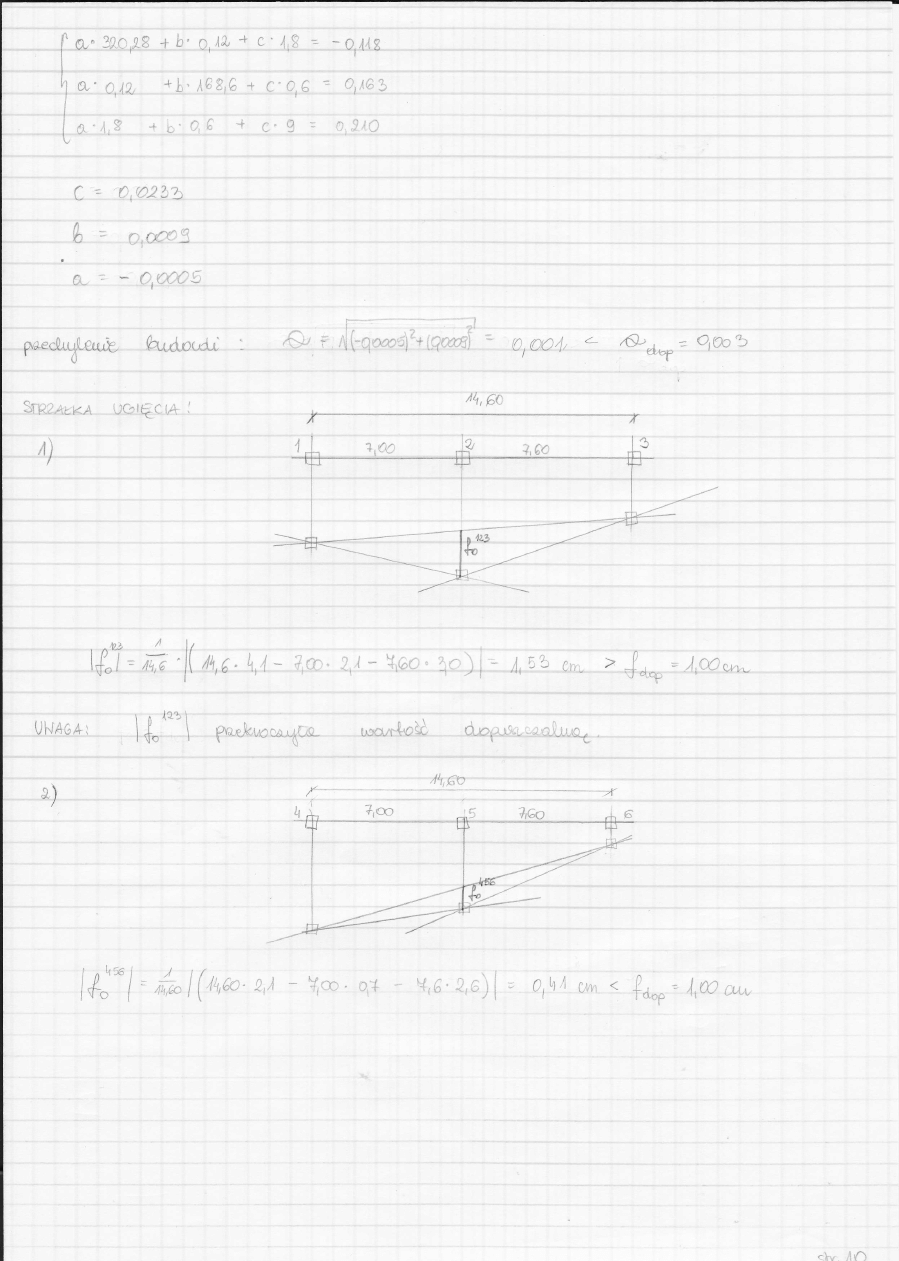 a · 320,28 + b · 0,12 + c · 1,8 = -0,118
a · 0,12 + b · 168,6 + c · 0,6 = 0,163
a · 1,8 + b · 0,6 + c · 9 = 0,210
c = 0,0233
b = 0,0009
a = - 0,0005
przechylenie budowli : = √(-0,0005)²+(0,0009)² = 0,001 < dop = 0,003
STRZAŁKA UGIĘCIA :
14,60
1)
1 7,00 2 7,60 3
f₀¹²³
|f₀¹²³| = 1/14,6 · |( 14,6 · 4,1 - 7,00 · 2,1 - 7,60 · 3,0 )| = 1,53 cm > f dop = 1,00 cm
UWAGA: |f₀¹²³| przekroczyła wartość dopuszczalną.
2)
14,60
4 7,00 5 7,60 6
f₀⁴⁵⁶
|f₀⁴⁵⁶| = 1/14,60 |(14,60 · 2,1 - 7,00 · 0,7 - 7,6 · 2,6)| = 0,41 cm < f dop = 1,00 cm
str. 10